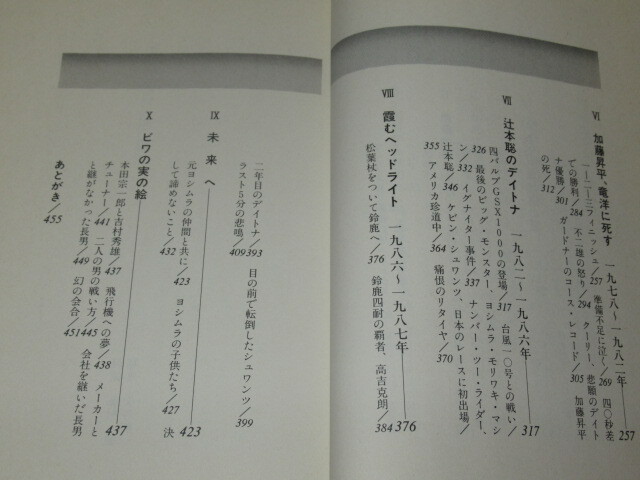 Ⅵ 加藤昇平、竜洋に死す 一九七八〜一九八二年 257
一-二-三フィニッシュ/257 準備不足に泣く/269 四〇秒差
ての勝利/284 不二雄の怒り/294 クーリー、悲願のデイト
ナ優勝/301 ガードナーのコース・レコード/305 加藤昇平
の死/312
Ⅶ 辻本聡のデイトナ 一九八二〜一九八六年 317
四バルブGSX1000の登場/317 台風一〇号との戦い/
326 最後のビッグ・モンスター、ヨシムラ・モリワキ・マシ
ン/332 イグナイター事件/337 ナンバー・ツー・ライダー、
辻本聡/346 ケビン・シュワンツ、日本のレースに初出場/
355 アメリカ珍道中/364 痛恨のリタイヤ/370
Ⅷ 霞むヘッドライト 一九八六〜一九八七年 376
松葉杖をついて鈴鹿へ/376 鈴鹿四耐の覇者、高吉克朗/384
二年目のデイトナ/393 目の前で転倒したシュワンツ/399
ラスト5分の悲鳴/409
Ⅸ 未来へ 423
元ヨシムラの仲間と共に/423 ヨシムラの子供たち/427 決
して諦めないこと/432
Ⅹ ビワの実の絵 437
本田宗一郎と吉村秀雄/437 飛行機への夢/438 メーカーと
チューナー/441 二人の男の戦い方/445 会社を継いだ長男
と継がなかった長男/449 幻の会合/451
あとがき/455